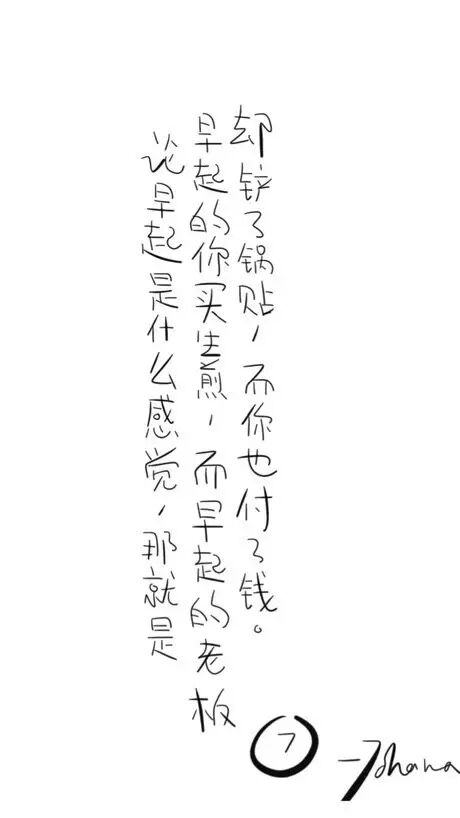 论早起是什么感觉，那就是
早起的你买生煎，而早起的老板
却铲了锅贴，而你也付了钱。
7
—Johana